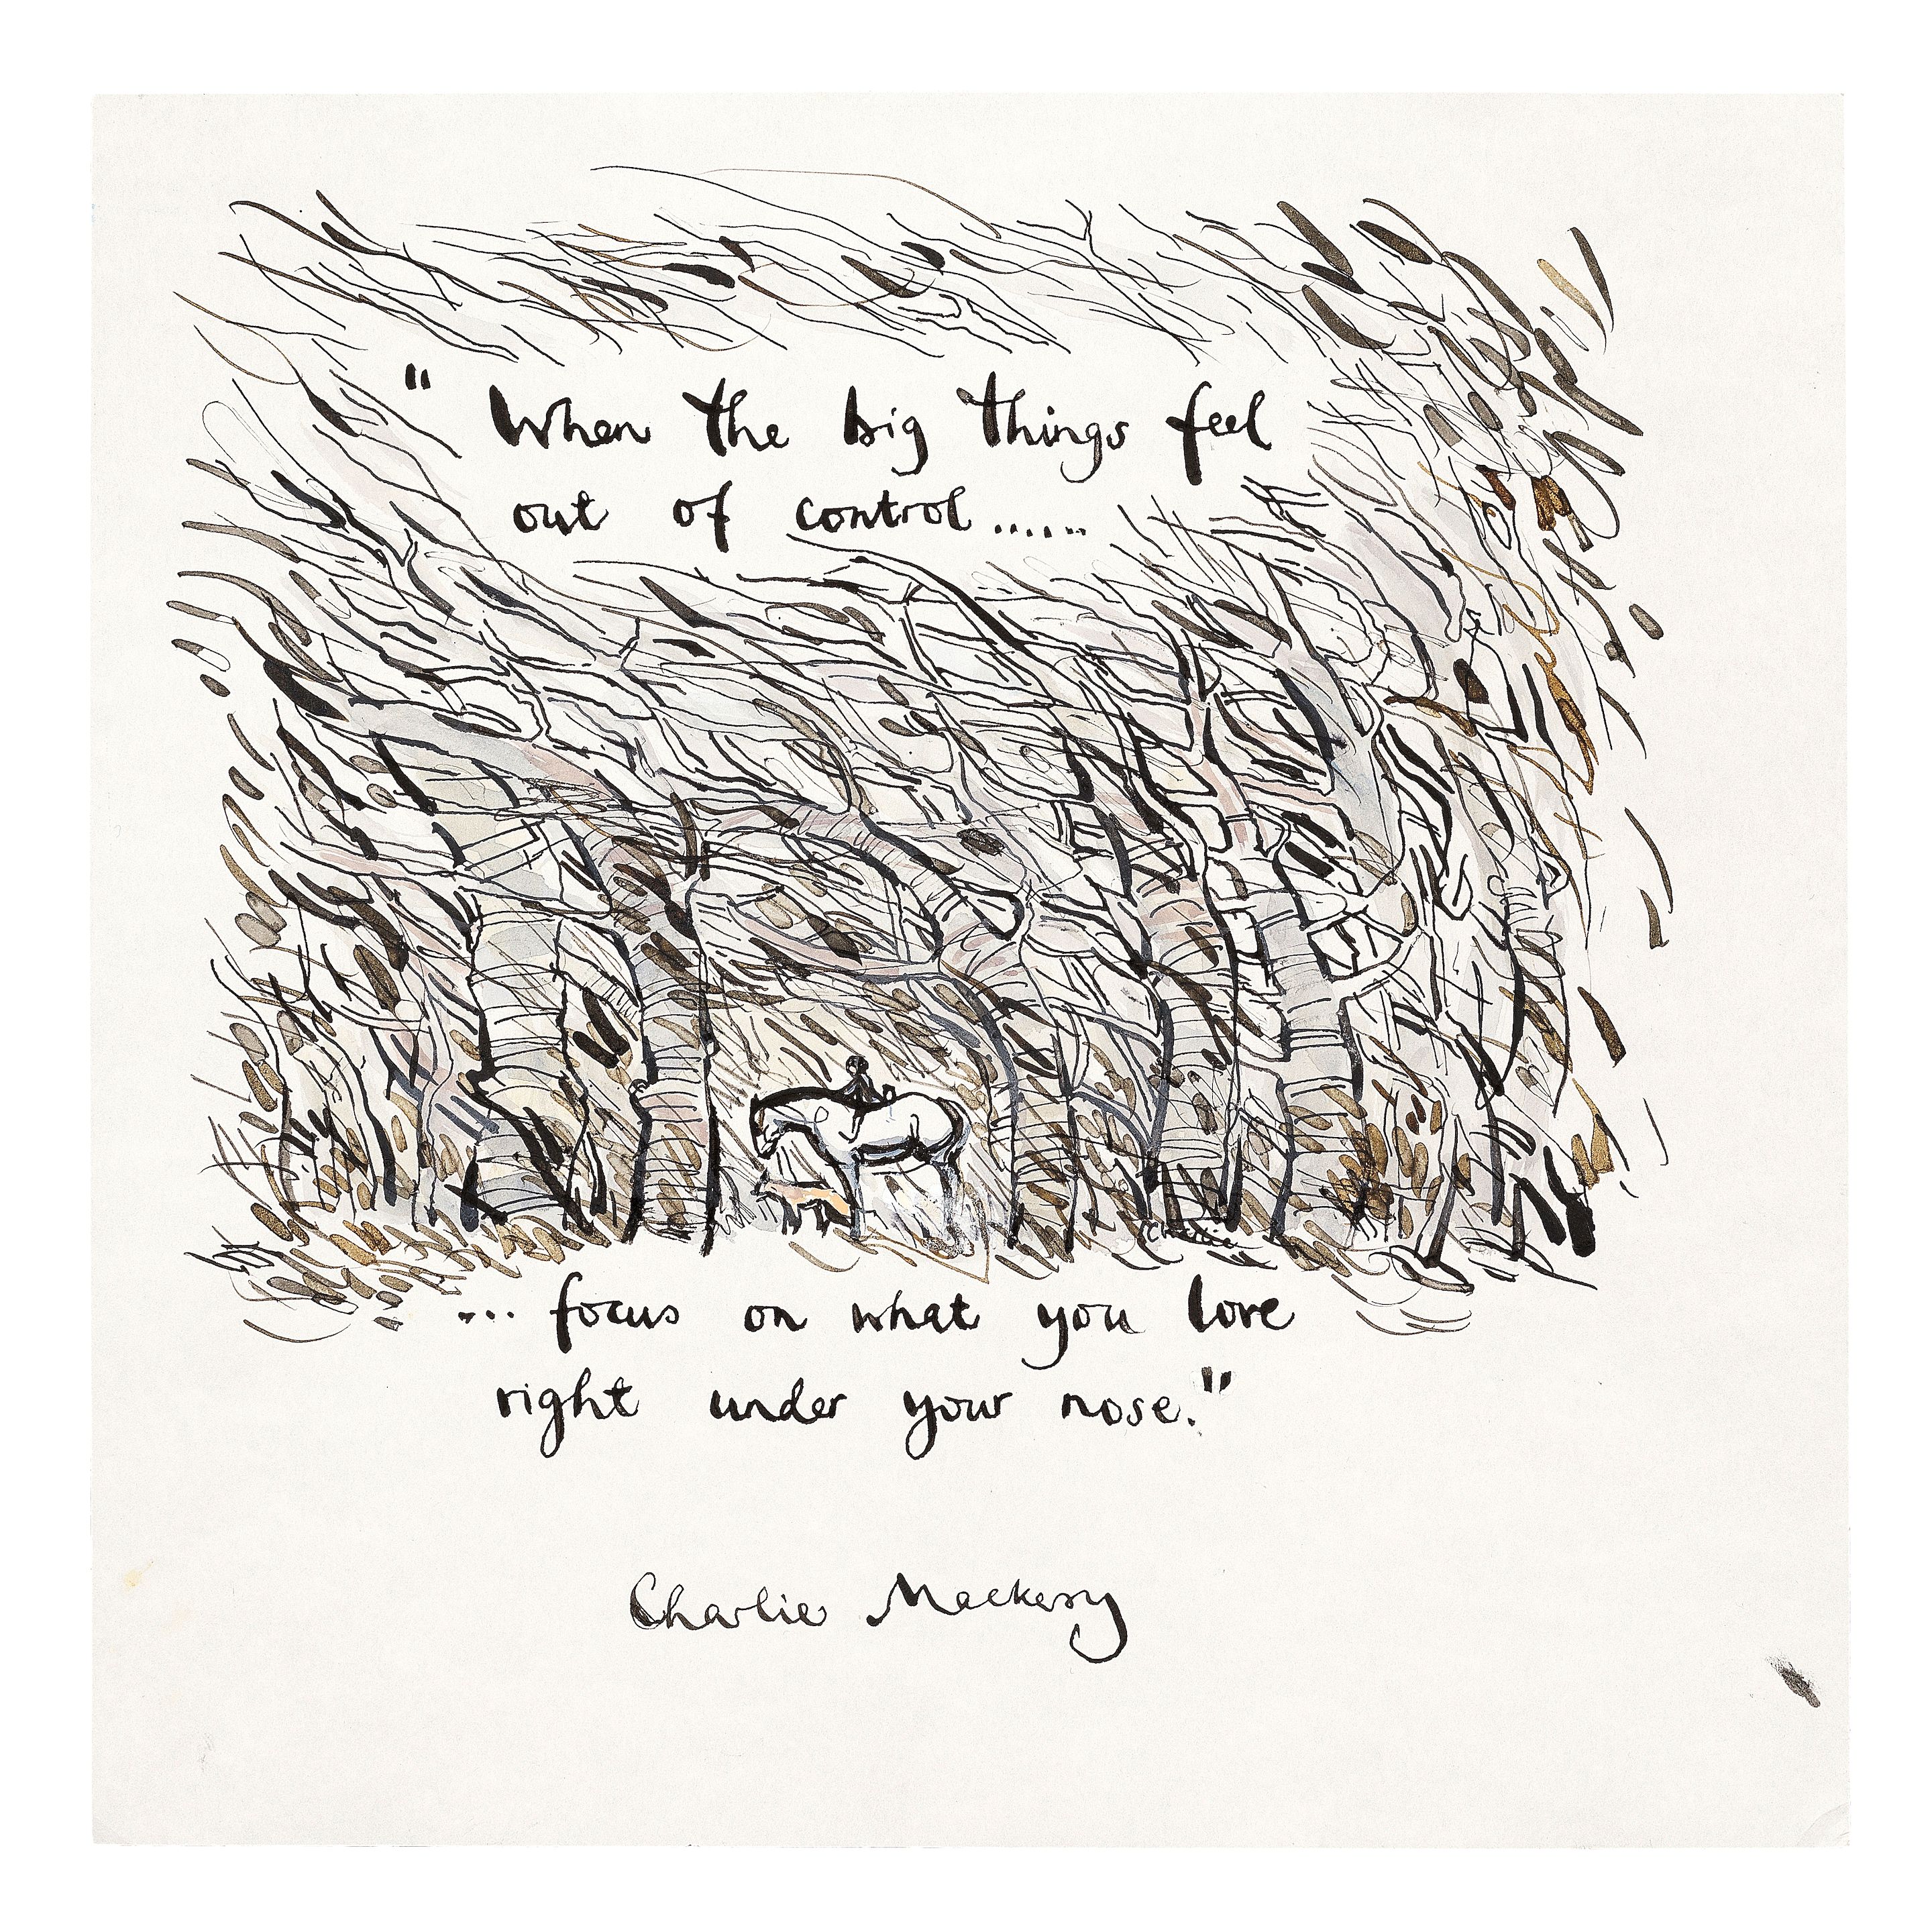 " When the big things feel
out of control......
Charlie
... focus on what you love
right under your nose."
Charlie Mackesy